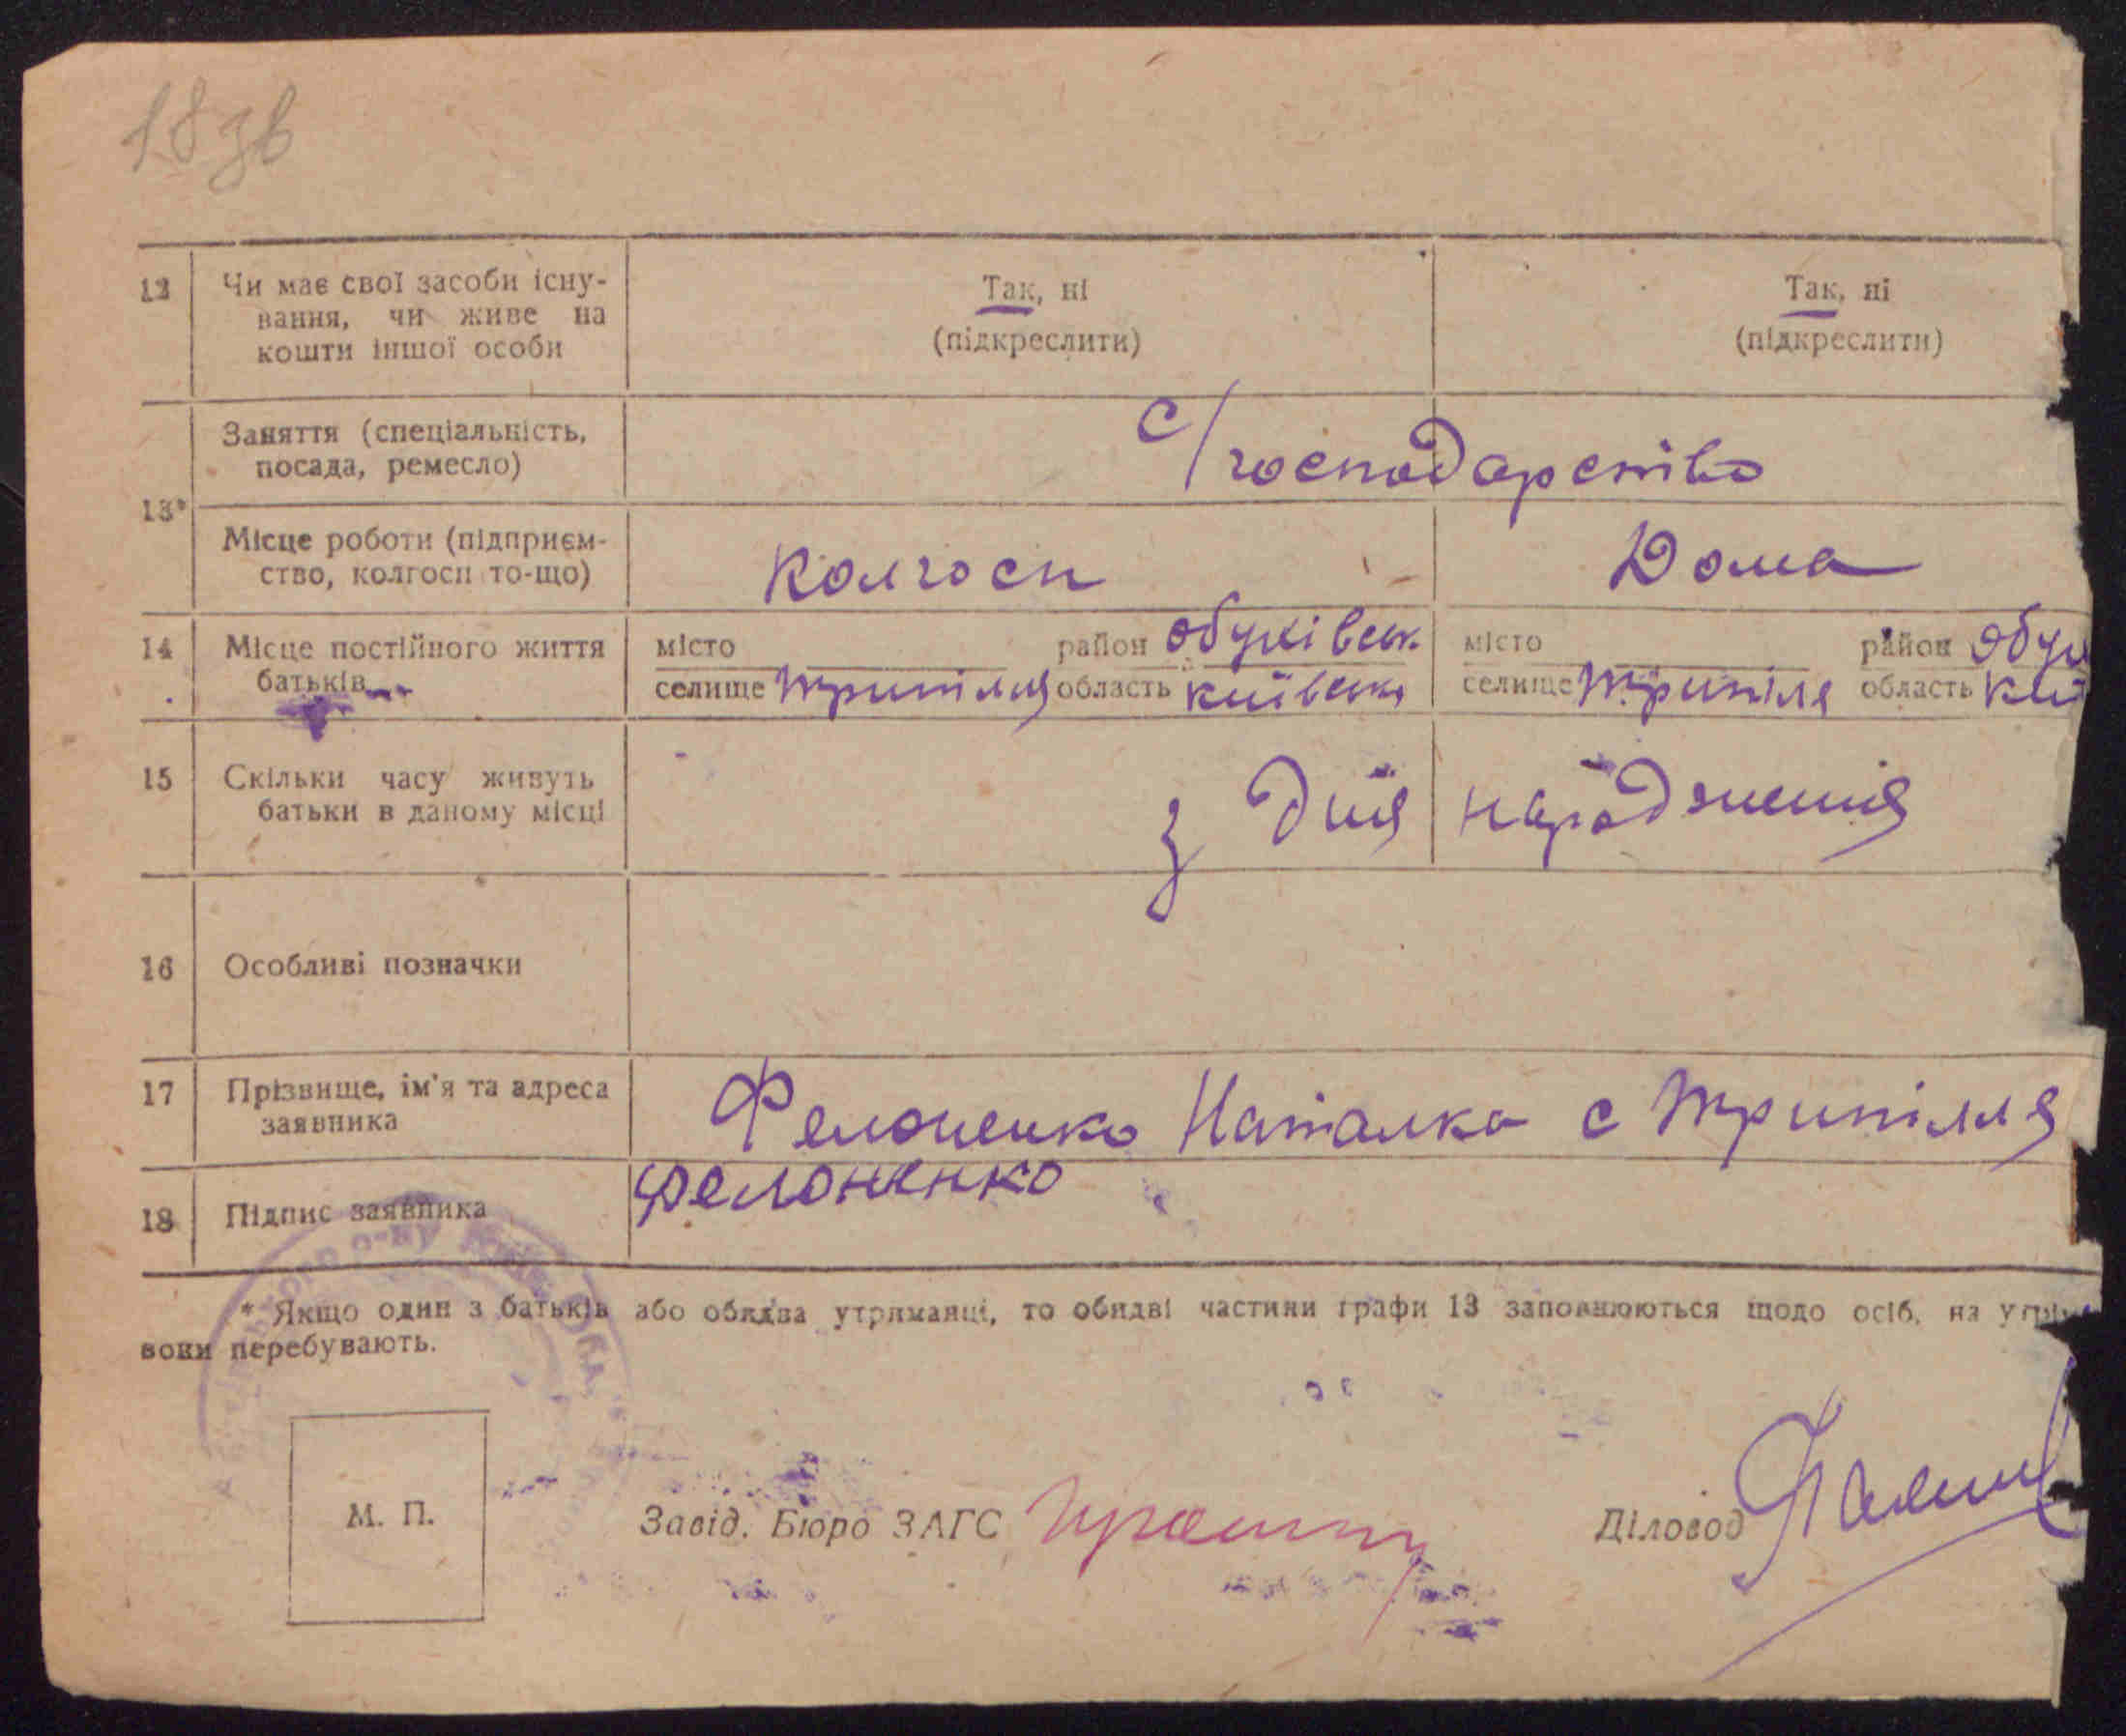 18 зв
12 Чи має свої засоби існу-
вання, чи живе на
кошти іншої особи
Так, ні
(підкреслити)
Так, ні
(підкреслити)
13*
Заняття (спеціальність,
посада, ремесло)
С/господарство
Місце роботи (підприєм-
ство, колгосп то-що)
Колгосп
Дома
14 Місце постійного життя
батьків
місто район Обухівськ.
селище Трипілля область Київська
місто район Обух
селище Трипіля область Киї
15 Скільки часу живуть
батьки в даному місці
З Дня народження
16 Особливі позначки
17 Прізвище, ім'я та адреса
заявника
Фелоненко Наталка с Трипілля
18 Підпис заявника
Фелоненко
* Якщо один з батьків або обидва утриманці, то обидві частини графи 13 заповнюються щодо осіб, на утри
вони перебувають.
М. П.
Завід. Бюро ЗАГС
Діловод